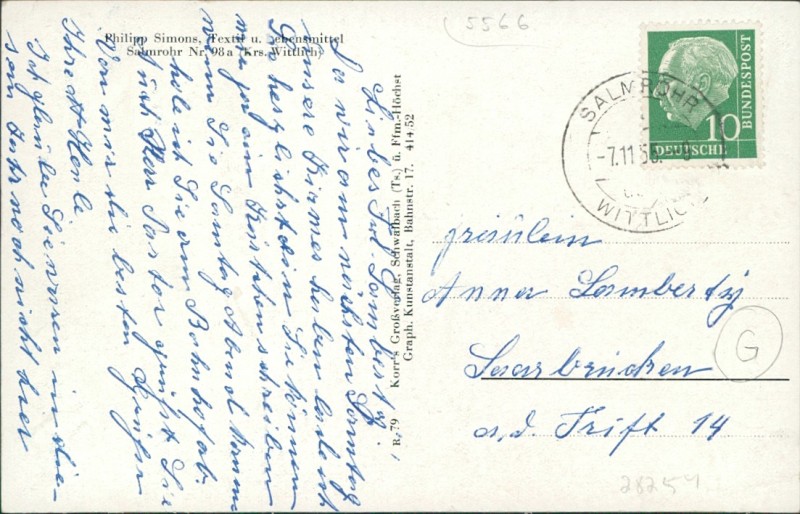 5566
Philipp Simons, Textil u. Lebensmittel
Salmrohr Nr. 98a (Krs. Wittlich)
Liebes Frl. Lambertz
Da wir am nächsten Sonntag
unsere Kirmes haben lade ich
Sie herzlichst ein Sie können
mir ja ein Kärtchen schreiben
wenn Sie Samstag Abend kommen
hole ich Sie am Bahnhof ab.
Auch Herr Pastor grüßt Sie
Von mir die besten Grüße
Ihre
Ich glaube Sie waren in die-
sem Jahr noch nicht hier
R 79 Korr's Großverlag, Schwalbach (Ts.) ü. Ffm.-Höchst
Graph. Kunstanstalt, Bahnstr. 17. 414 52
DEUTSCHE BUNDESPOST
10
SALMROHR
-7.11.56
WITTLICH
Fräulein
Anna Lambertz
Saarbrücken
a. d. Trift 14
G
28254